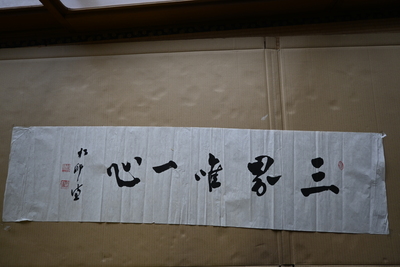 三界唯一心